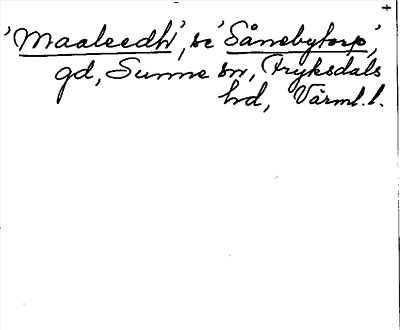 'Maaleedh', se 'Sånebytorp',
gd, Sunne sn, Fryksdals
hd, Värml.l.